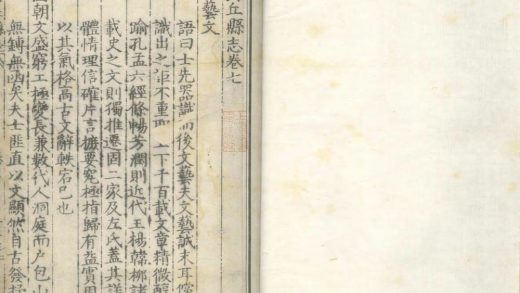 丘縣志卷七
藝文
語曰士先器識而後文藝夫文藝誠末耳儻
識出之詎不重耶 上下千百載文章精微醇
踰孔孟六經條暢芳潤則近代王楊韓柳諸
載史之文則獨推遷固二家及左氏蓋其詳
體情理信確片言摭要究極指歸有益實用
以其氣格高古文辭軼宕已也
朝文盛窮工極變長兼數代人洞庭而戶包山
無鏄無函矣夫士匪直以文顯然自古發